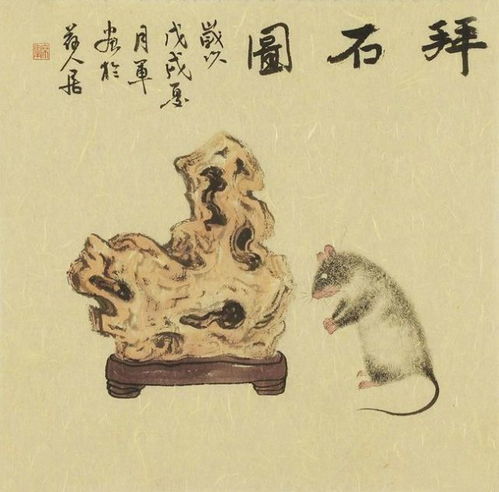 拜石圖
歲次
戊戌夏
月軍
畫於
若人居